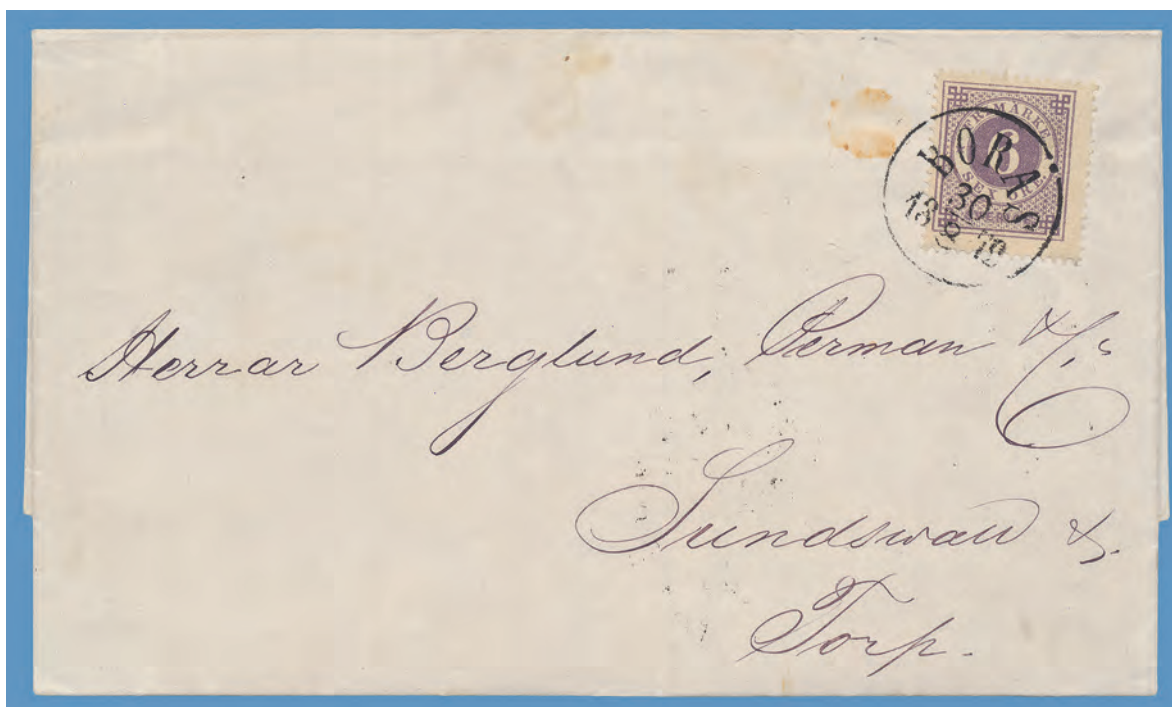 FRIMÄRKE
6
SEX ÖRE
BORÅS
30
18 8 72
Herrar Berglund, Perman & C
Sundswall &
Torp.